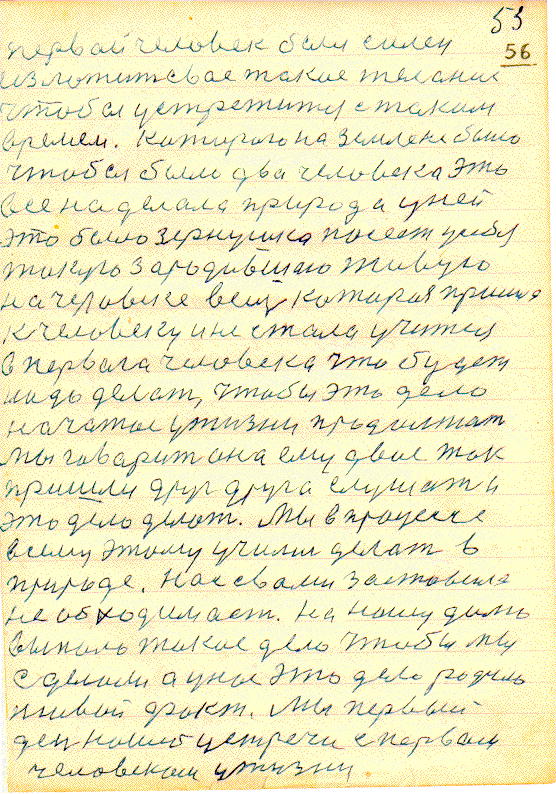 53
56
первай человек был силен
изложит свае такое желание
чтобы устретится с таким
время. Каторого на земле не было
чтобы было два человека это
все наделала природа у ней
это было зернушка посеет у себя
такую зародившаю живую
на человеке вещ каторая пришла
к человеку и не стала учится
в первага человека что будет
надо делат, чтобы это дело
начатое у жизни продолжат
мы говарит она ему двое так
пришли друг друга слушат и
это дело делат. Мы в процессе
всему этому учили делат в
природе. Нас свами заставила
необходимаст. на нашу долю
выпало такое дело чтобы мы
сделали а у нас это дело родило
живой факт. Мы первый
ден нашей устречи с первам
человекам у жизни